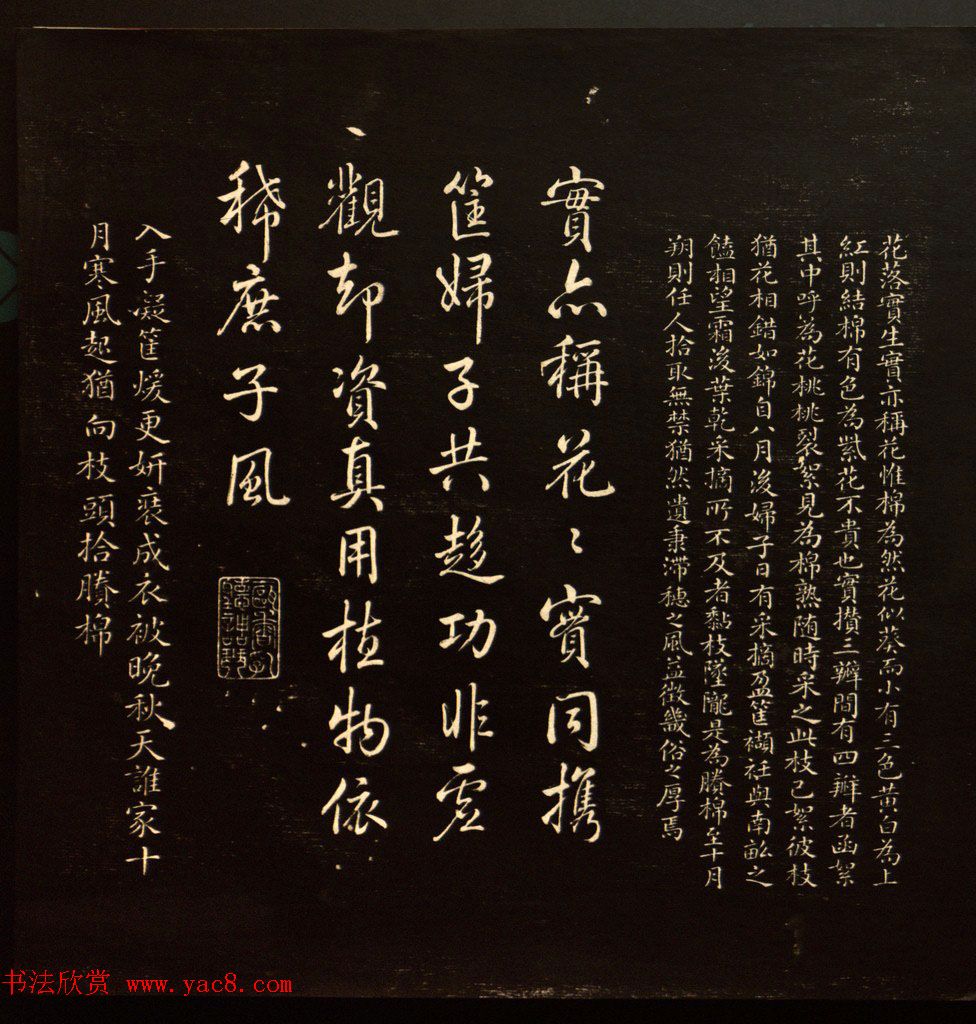 花落實生實亦稱花惟棉為然花似葵而小有三色黃白為上
紅則結棉有色為紫花不貴也實攢三瓣間有四瓣者函絮
其中呼為花桃桃裂絮見為棉熟随時采之此枝已絮彼枝
猶花相錯如錦自八月後婦子日有采摘盈筐襭衽與南畝之
饁相望霜後葉乾采摘所不及者黏枝墜隴是為賸棉至十月
朔則任人拾取無禁猶然遺秉滯穗之風益徵畿俗之厚焉
實亦稱花花實同攜
筐婦子共趍功非虛
觀却資真用植物依
稀庶子風
入手凝筐煖更妍裝成衣被晚秋天誰家十
月寒風起猶向枝頭拾賸棉
书法欣赏 www.yac8.com